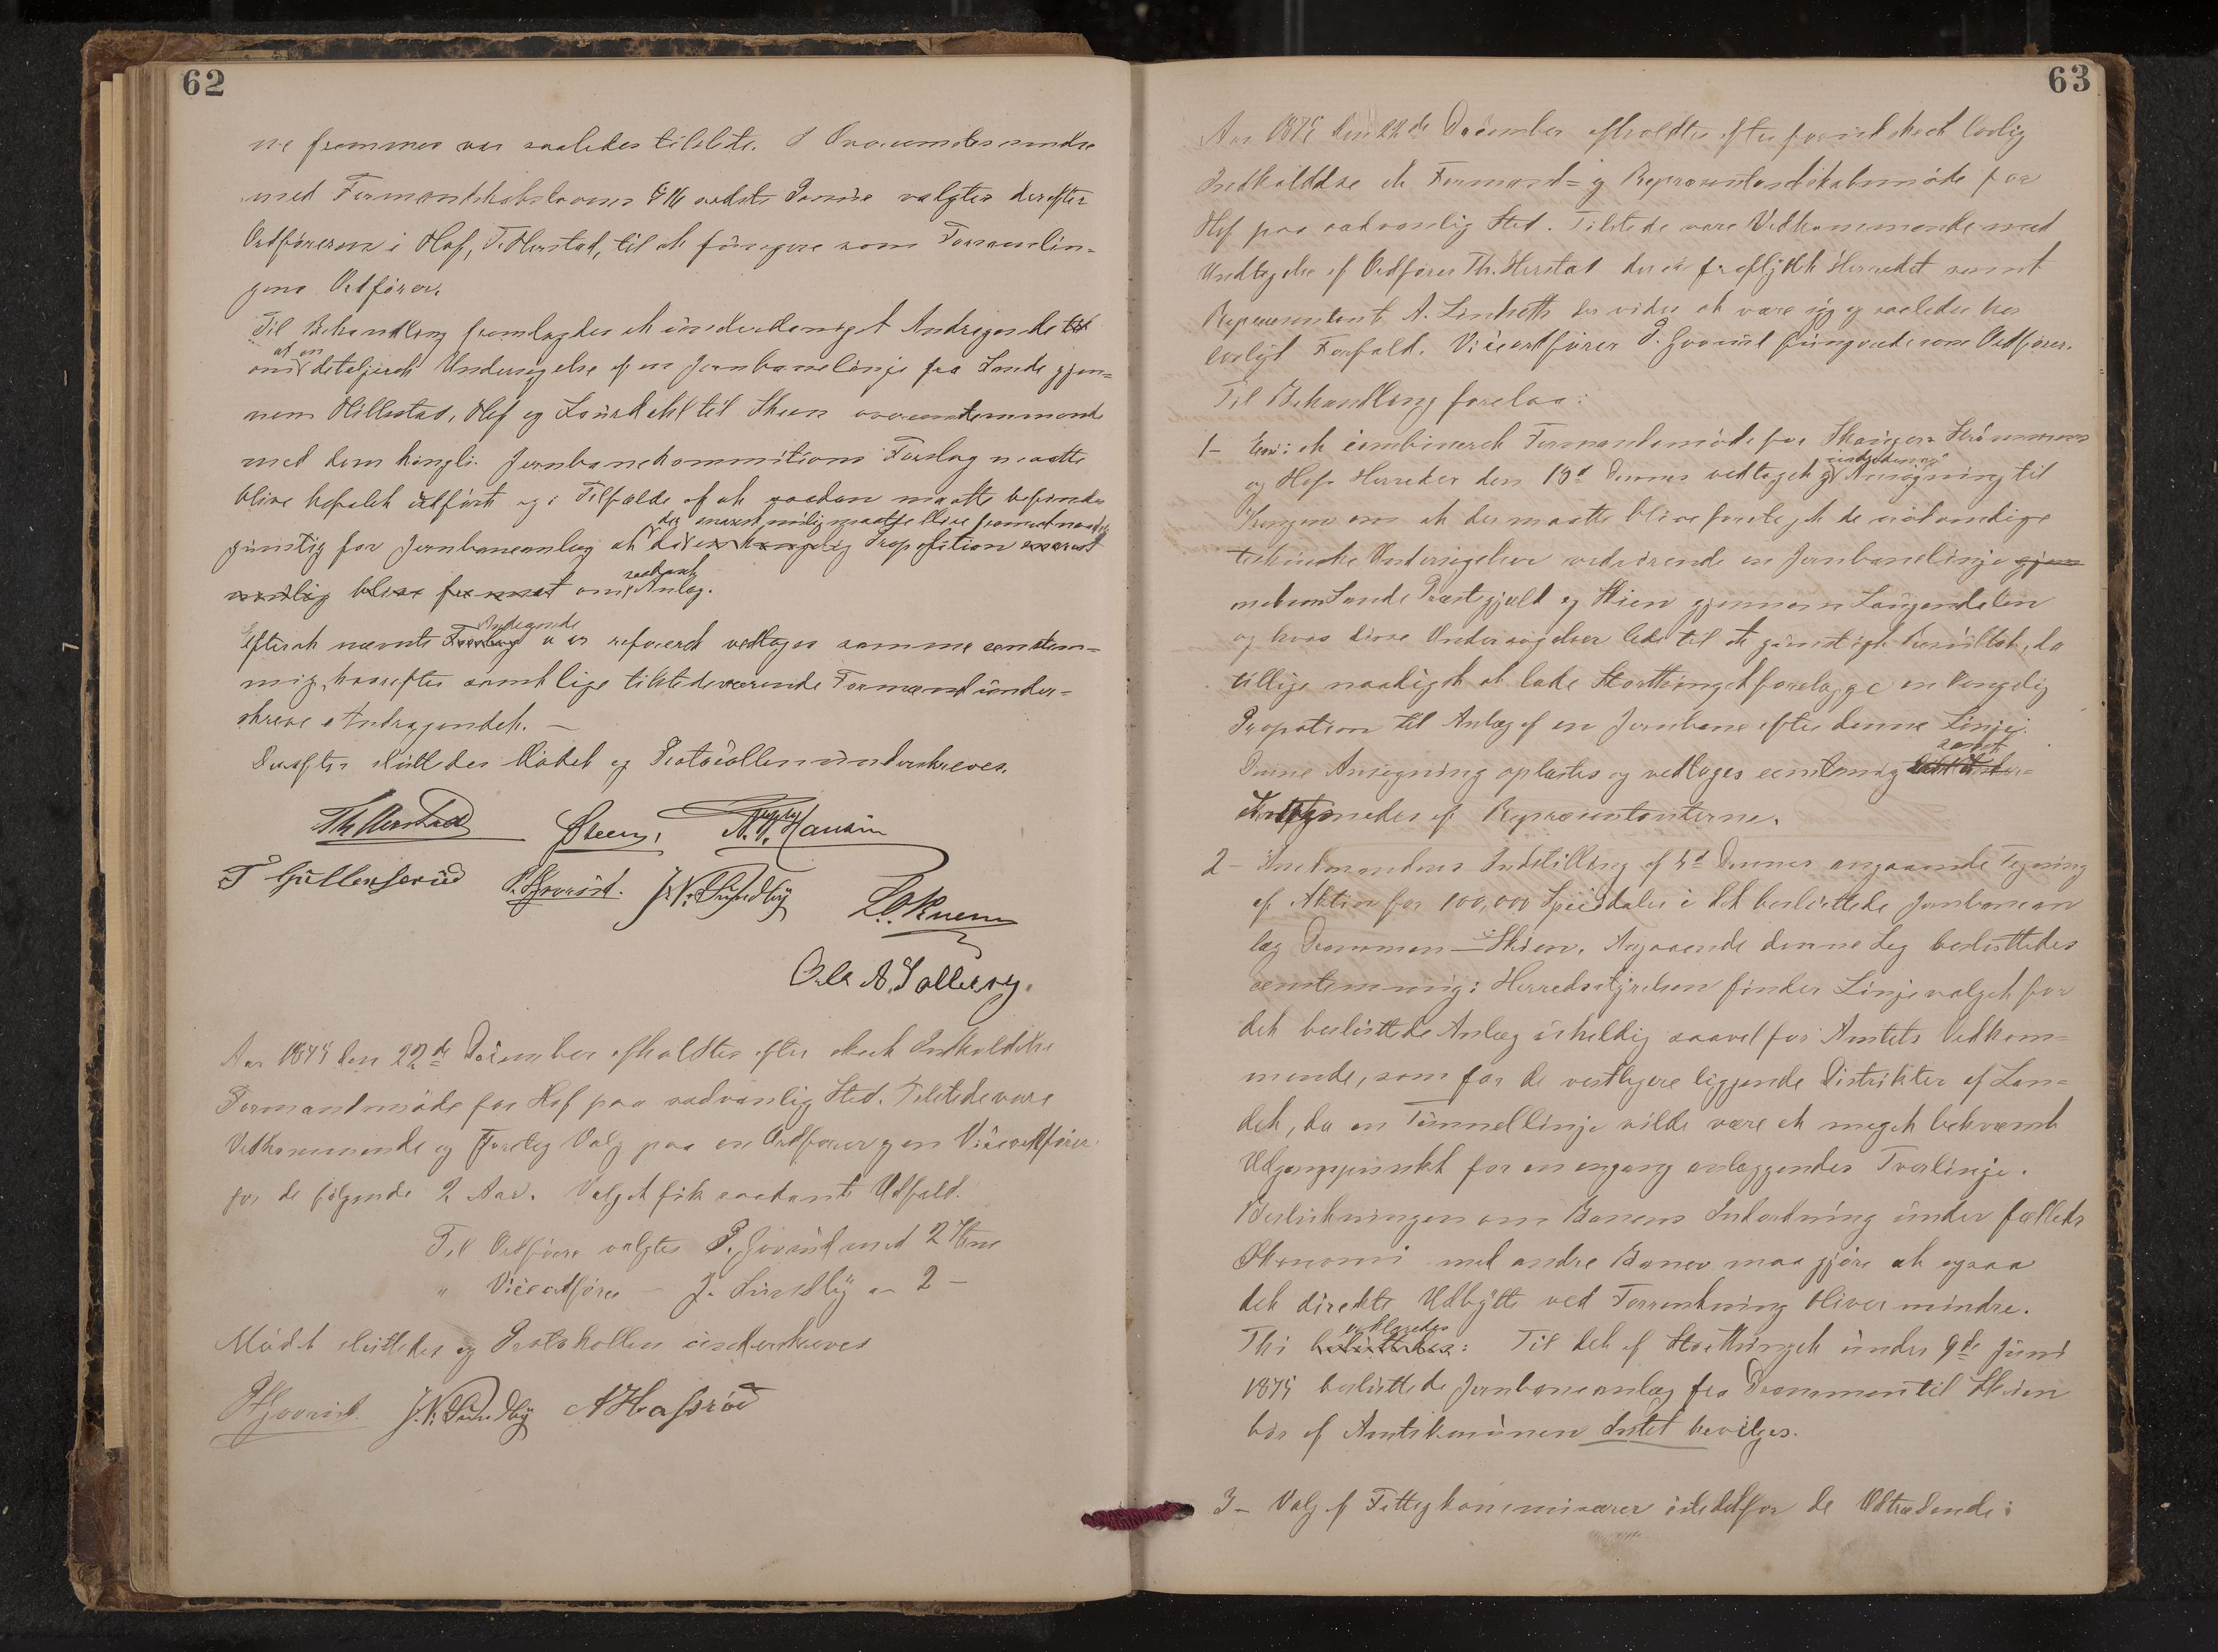 62
ne fremmes var saaledes tilstede. I Overensstemmelse
med Formandskabslovens § sidste Passus valgtes derefter
Ordføreren i Hof, Th. Herstad, til at fungere som Forsamlin-
gens Ordfører.
Til Behandling fremlagdes et underdanigst Andragende
om at en detaljeret Undersøgelse af en Jernbanelinje fra Sande gjen-
nem Hillestad, Hof og Laurdahl til Skien overensstemmende
med den kongli. Jernbanekommitions Forslag maatte
blive befalet udført og i Tilfælde af at saadan maatte befindes
gunstig for Jernbaneanlæg at da der snarest mulig maatte blive fremsat naadigst Proposition snarest
mulig blive fremsat om saadant Anlæg.
Efterat nævnte Andragende var refereret vedtoges samme eenstem-
mig, hvorefter samtlige tilstedeværende Formænd under-
skrev Andragendet. —
Derefter sluttedes Mødet og Protocollen underskreves.
Th Herstad Steen. A. Hansen
T Gullenserud P. Gjvorud. J. N. Sundby L. C. Ruem
Ole A. Sollerøg.
Aar 1875 den 22de December afholdtes efter skeet Indkaldelse
Formandsmøde for Hof paa sædvanlig Sted. Tilstede vare
Vedkommende og foretog Valg paa en Ordfører og en Viceordfører
for de følgende 2 Aar. Valget fik saadant Udfald.
Til Ordfører valgtes P. Gvorud med 2 Stm
" Viceordfører — J. Sundby — 2 —
Mødet sluttedes og Protokollen underskreves
P Gvorud. J. N. Sundby A Hasrød
63
Aar 1875 den 22de December afholdtes efter forudskeet lovlig
Indkaldelse et Formand- og Repræsentantskabsmøde for
Hof paa sædvanlig Sted. Tilstede vare Vedkommende med
Undtagelse af Ordfører Th. Herstad der er fraflyttet Herredet samt
Repræsentant A. Linheth der vides at være syg og saaledes har
lovligt Forfald. Viceordfører P. Gvorud fungerede som Ordfører.
Til Behandling forelaa:
1- En i et combineret Formandsmøde for Skouger, Strømmens
og Hofs Herreder den 18d Dennes vedtaget og indgaaende Ansøgning til
Kongen om at der maatte blive foretaget de nødvendige
tekniske Undersøgelser vedrørende en Jernbanelinje gjen
mellem Sande Præstegjæld og Skien gjennem Laugendalen
og hvis disse Undersøgelser lede til et gunstigt Resultat, da
tillige naadigst at lade Storthinget forelægge en kongelig
Propotion til Anlæg af en Jernbane efter denne Linje.
Denne Ansøgning oplæstes og vedtoges eenstemig samt
medes af Repræsentanterne.
2- Amtmandens Indstilling af 4d Dennes angaaende Tegning
af Aktier for 100,000 Speciedaler i det besluttede Jernbanean
læg Drammen—Skien. Angaaende denne Sag besluttedes
eenstemmig: Herredsstyrelsen finder Linjevalget for
det besluttede Anlæg uheldig saavel for Amtets Vedkom-
mende, som for de vestligere liggende Distrikter af Lan-
det, da en Tunnellinje vilde være et meget bekvemt
Udgangspunkt for en engang anlæggendes Tverlinje.
Beslutningen om Banens Indordning under fælleds
Økonomi med andre Baner maa gjøre at ogsaa
det direkte Udbytte ved Forrentning bliver mindre.
Thi erklæredes besluttedes: Til det af Storthinget under 9de Juni
1875 besluttede Jernbaneanlæg fra Drammen til Skien
bør af Amtskomunen Intet bevilges.
3- Valg af Fattigkommisærer istedetfor de Udtrædende: